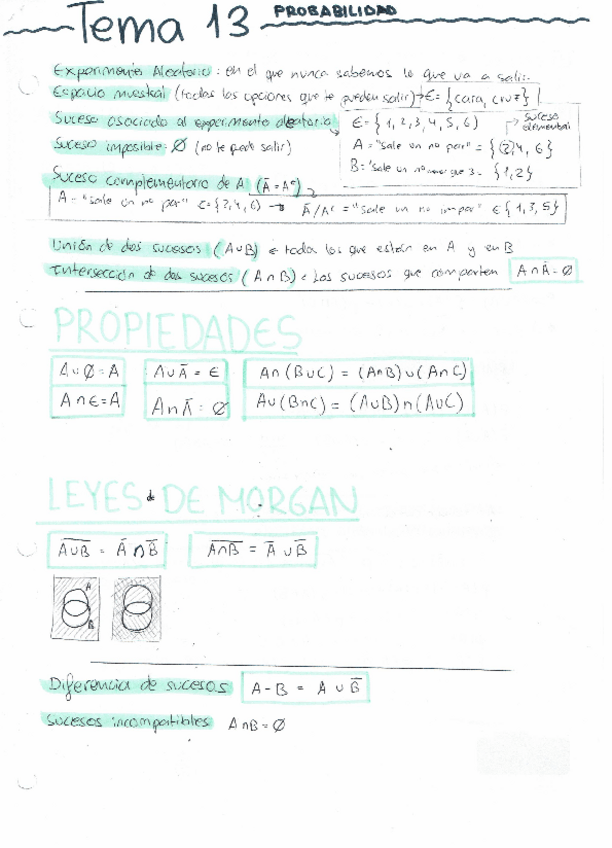 Tema 13 PROBABILIDAD
Experimento Aleatorio: en el que nunca sabemos lo que va a salir.
Espacio muestral (todas las opciones que te pueden salir) → E = {cara, cruz}
Suceso asociado al experimento aleatorio E = {1, 2, 3, 4, 5, 6} → Suceso elemental
Suceso imposible: Ø (no te puede salir) A = "sale un nº par" = {2, 4, 6}
B = "sale un nº menor que 3 = {1, 2}
Suceso complementario de A (Ā = Aᶜ)
A = "sale un nº par" E = {2, 4, 6} → Ā/Aᶜ = "sale un nº impar" E {1, 3, 5}
Unión de dos sucesos (A∪B) = todos los que están en A y en B
Intersección de dos sucesos (A∩B) = Los sucesos que comparten A∩Ā = Ø
PROPIEDADES
A∪Ø = A A∪Ā = E A∩(B∪C) = (A∩B)∪(A∩C)
A∩E = A A∩Ā = Ø A∪(B∩C) = (A∪B)∩(A∪C)
LEYES de DE MORGAN
A̅∪̅B̅ = Ā∩B̅ A̅∩̅B̅ = Ā∪B̅
A
B
Diferencia de sucesos A - B = A ∪ B̅
Sucesos incompatibles A∩B = Ø